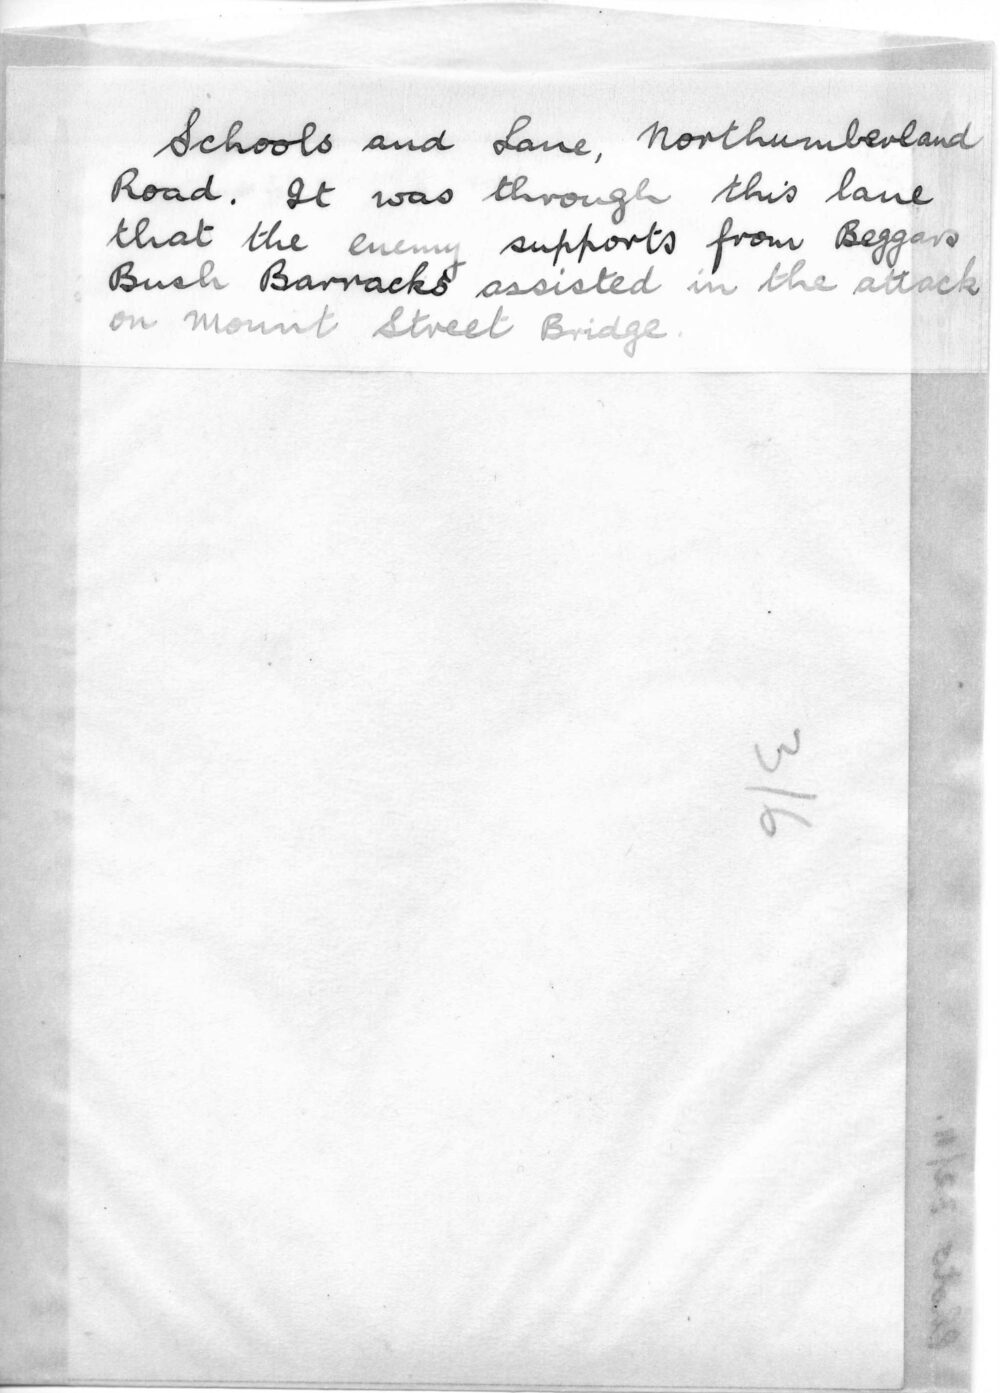 Schools and Lane, Northumberland
Road. It was through this lane
that the enemy supports from Beggars
Bush Barracks assisted in the attack
on Mount Street Bridge.